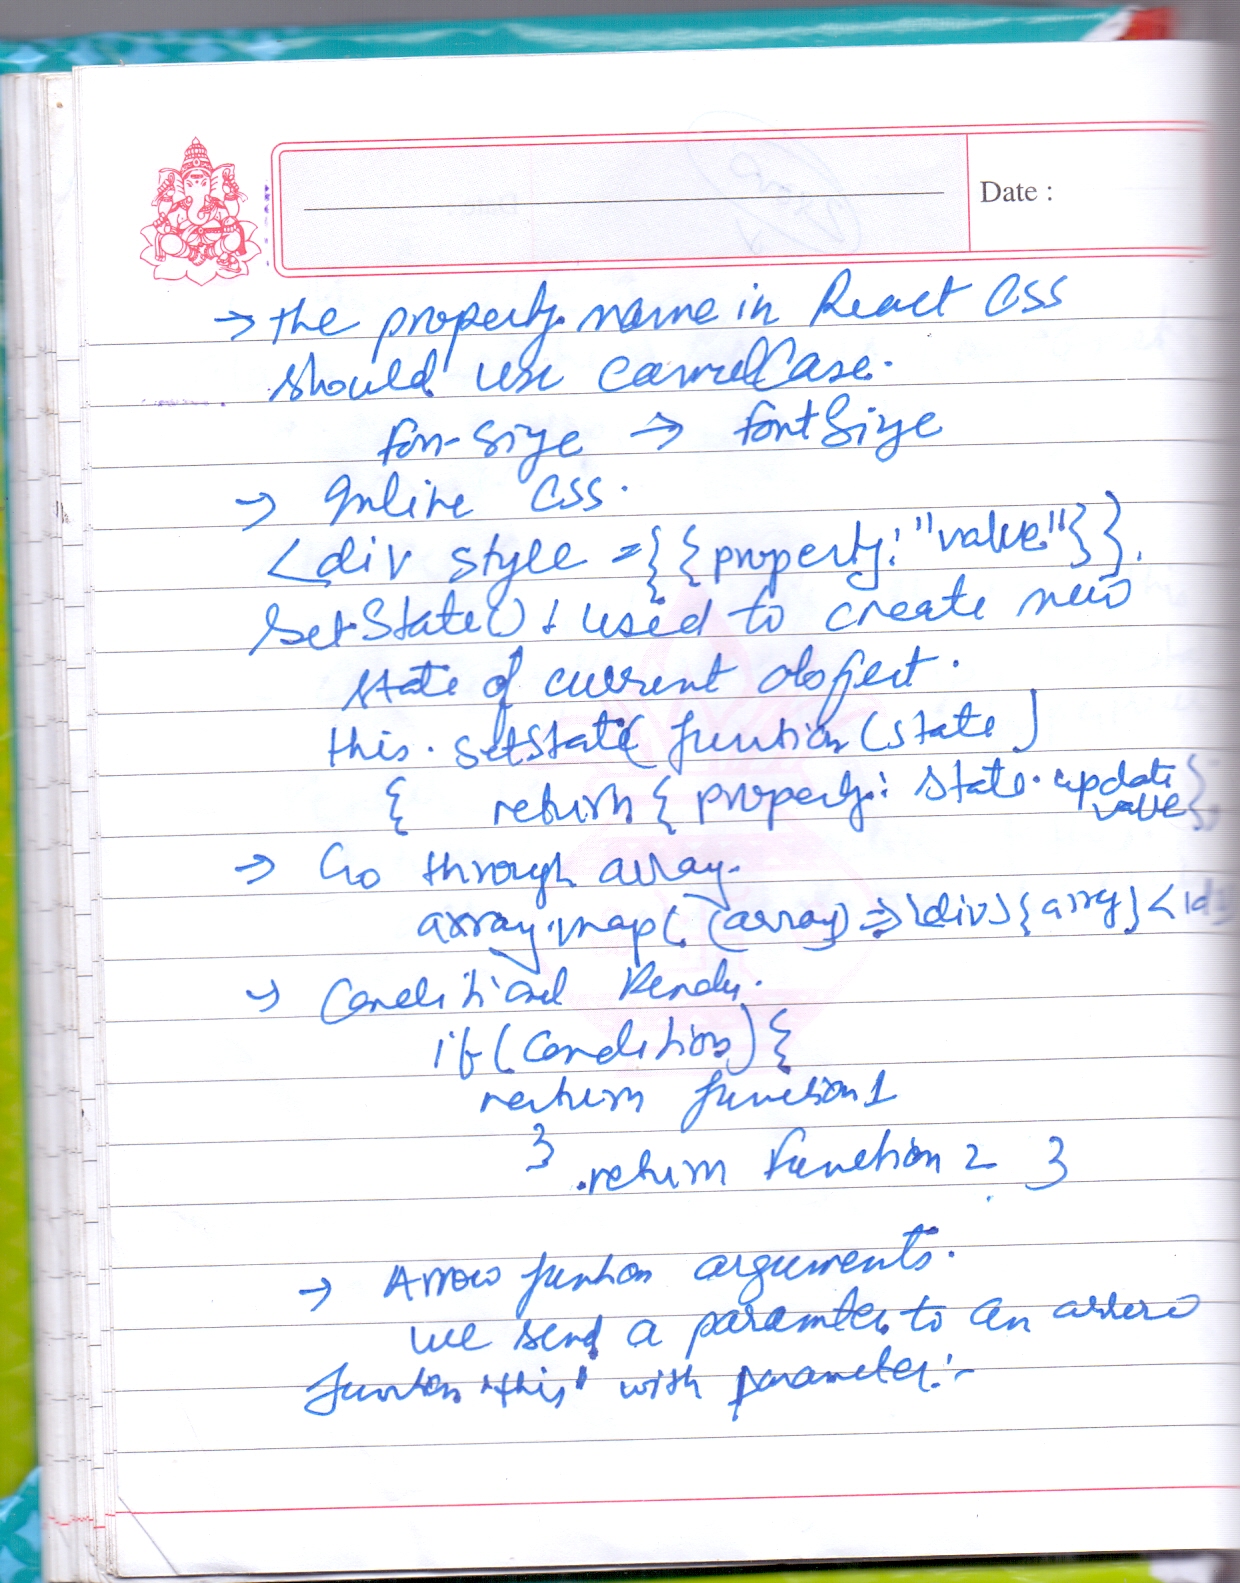 Date :
→ the property name in React CSS
should use camelCase.
fon-size → fontSize
→ Inline CSS.
<div style={{property:"value"}}.
SetState() used to create new
state of current object.
this.setState(function(state)
{ return { property: state.update
value};
→ Go through array.
array.map((array)=>
→ Conditional Render.
if(Condition){
return function1
} return function 2 }
→ Arrow funtion arguments.
we send a paramter to an arrow
funtion "this" with parameter:-